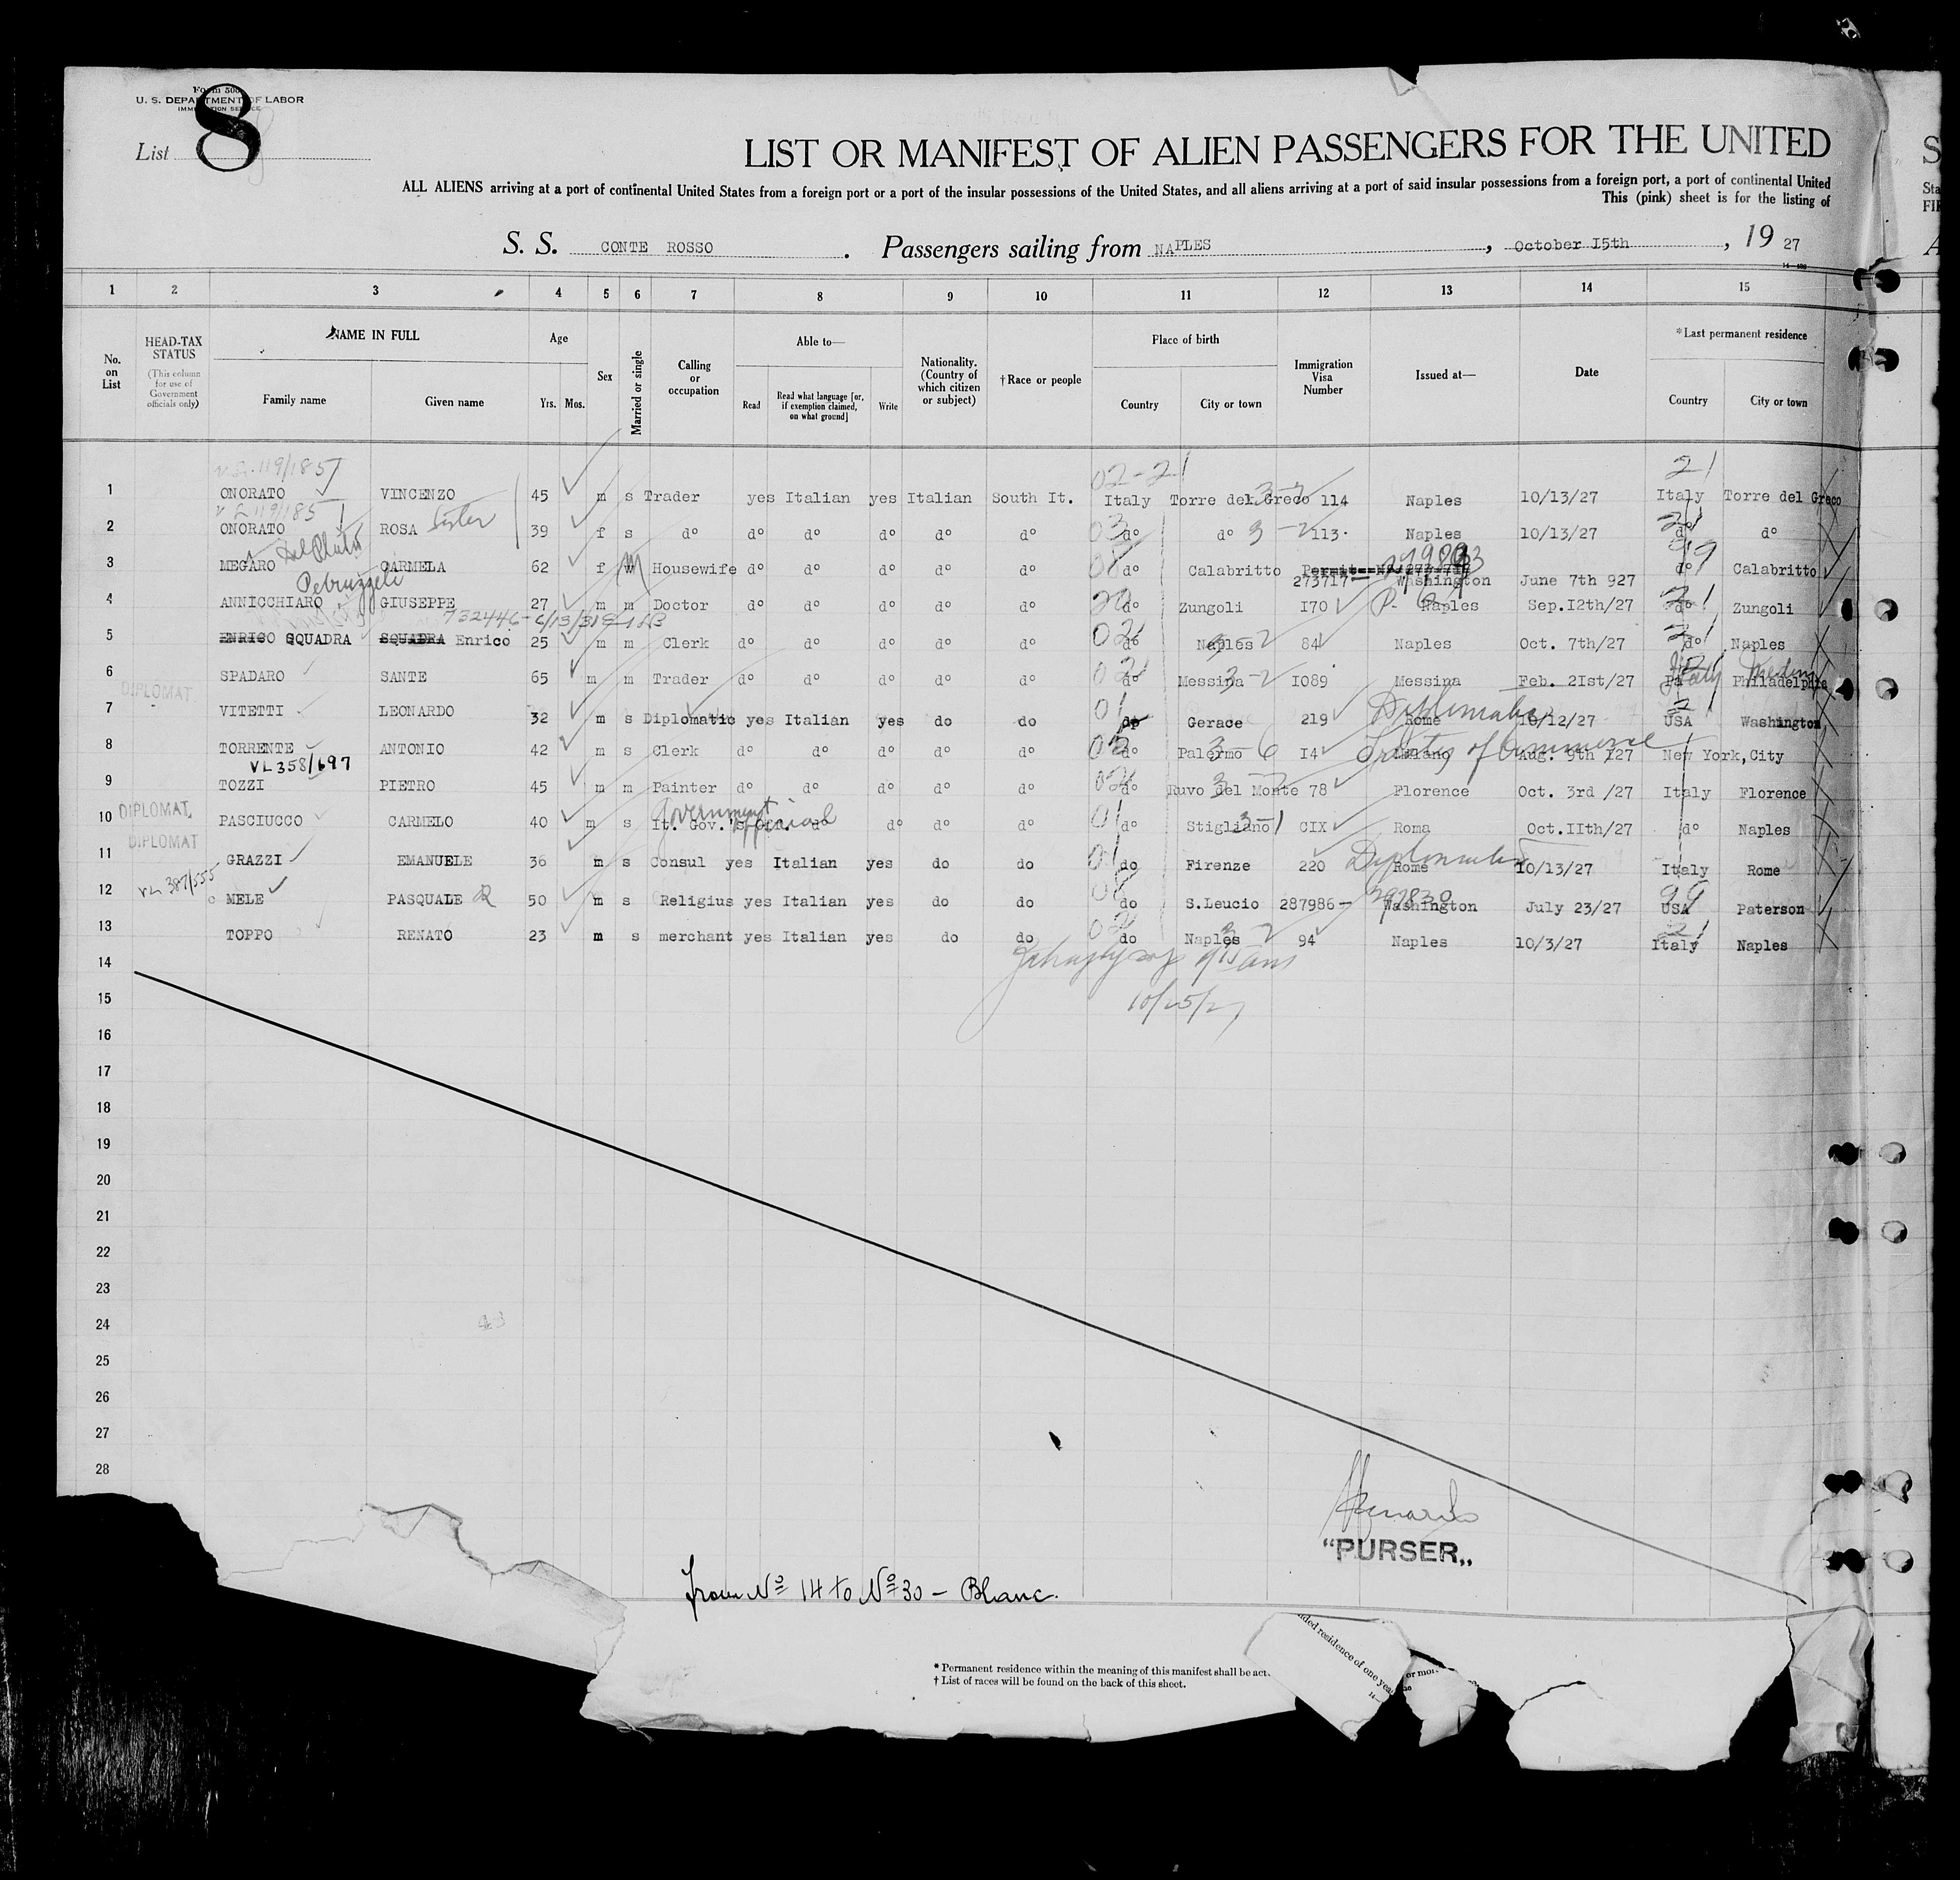 Form 500
U. S. DEPARTMENT OF LABOR
IMMIGRATION SERVICE
List 8
LIST OR MANIFEST OF ALIEN PASSENGERS FOR THE UNITED
ALL ALIENS arriving at a port of continental United States from a foreign port or a port of the insular possessions of the United States, and all aliens arriving at a port of said insular possessions from a foreign port, a port of continental United
This (pink) sheet is for the listing of
S. S. CONTE ROSSO. Passengers sailing from NAPLES, October I5th, 19 27
1 2 3 4 5 6 7 8 9 10 11 12 13 14 15
No. on List
HEAD-TAX STATUS (This column for use of Government officials only)
NAME IN FULL Family name Given name
Age Yrs. Mos.
Sex
Married or single
Calling or occupation
Able to— Read Read what language [or, if exemption claimed, on what ground] Write
Nationality. (Country of which citizen or subject)
†Race or people
Place of birth Country City or town
Immigration Visa Number
Issued at—
Date
*Last permanent residence Country City or town
119/185 02-2 21
1 ONORATO VINCENZO 45 m s Trader yes Italian yes Italian South It. Italy Torre del Greco 114 Naples 10/13/27 Italy Torre del Greco
119/185
2 ONORATO ROSA Sister 39 f s do do do do do do 03 do do 3-2 113. Naples 10/13/27 do do
3 MEGARO CARMELA 62 f W Housewife do do do do do do Calabritto 273717 Washington June 7th 927 do Calabritto
Petruzzeli
4 ANNICCHIARO GIUSEPPE 27 m m Doctor do do do do do do Zungoli I70 Naples Sep.I2th/27 do Zungoli
732446-6/13/31
5 ENRICO SQUADRA SQUADRA Enrico 25 m m Clerk do do do do do 02 do Naples 84 Naples Oct. 7th/27 do Naples
6 SPADARO SANTE 65 m m Trader do do do do do 02 do Messina 3-2 I089 Messina Feb. 2Ist/27 Italy Philadelphia
DIPLOMAT
7 VITETTI LEONARDO 32 m s Diplomatic yes Italian yes do do 01 do Gerace 219 Rome Diplomatic 10/12/27 USA Washington
8 TORRENTE ANTONIO 42 m s Clerk do do do do do do Palermo 3-6 I4 Milano Treaty of Commerce Aug. 9th /27 New York, City
VL 358/697
9 TOZZI PIETRO 45 m m Painter do do do do do 02 do Ruvo del Monte 78 Florence Oct. 3rd /27 Italy Florence
DIPLOMAT
Government Official
10 PASCIUCCO CARMELO 40 m s It. Gov.'s do do do do 01 do Stigliano 3-1 CIX Roma Oct.IIth/27 do Naples
DIPLOMAT
11 GRAZZI EMANUELE 36 m s Consul yes Italian yes do do 01 do Firenze 220 Rome Diplomatic 10/13/27 Italy Rome
VL 387/555
12 MELE PASQUALE 50 m s Religius yes Italian yes do do do S.Leucio 287986- Washington July 23/27 USA Paterson
13 TOPPO RENATO 23 m s merchant yes Italian yes do do 02 do Naples 3-2 94 Naples 10/3/27 Italy Naples
14
10/25/27
15
16
17
18
19
20
21
22
23
24
25
26
27
28
"PURSER„
From No 14 to No 30 – Blanc.
* Permanent residence within the meaning of this manifest shall be
† List of races will be found on the back of this sheet.
residence of one year or